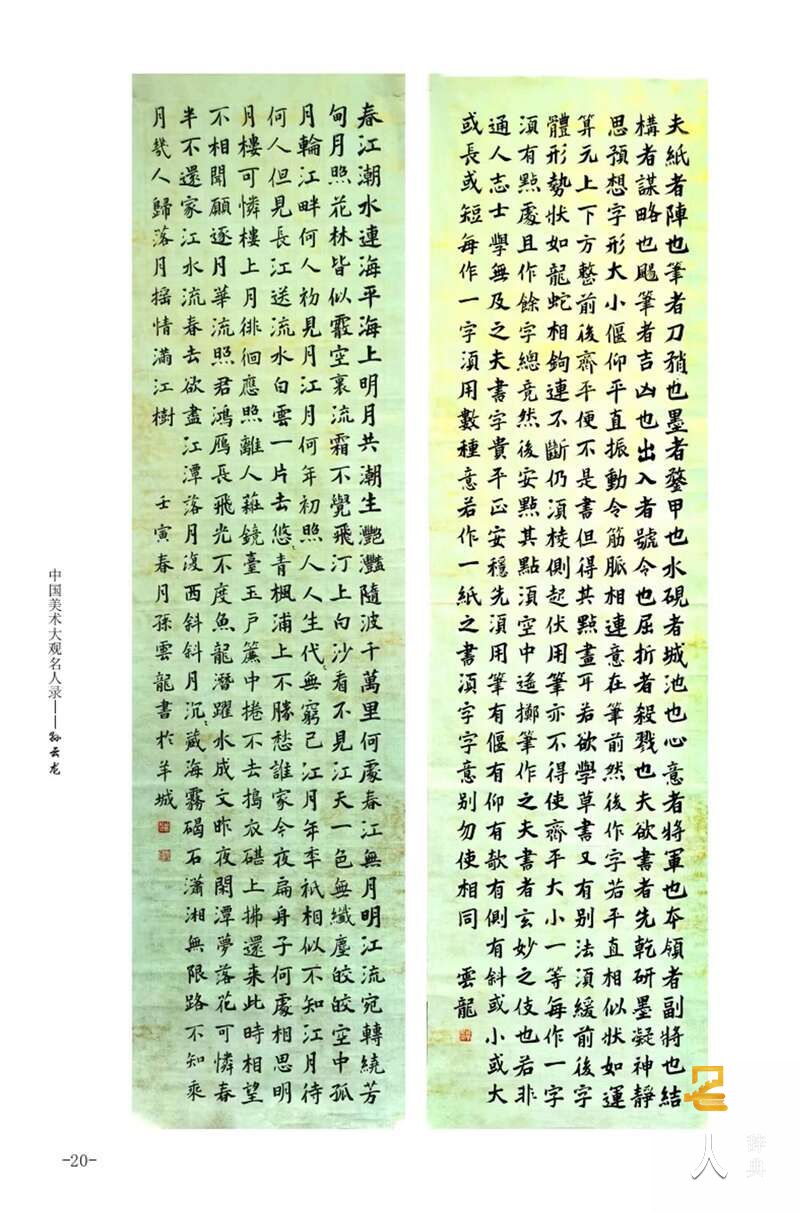 夫紙者陣也筆者刀矟也墨者鍪甲也水硯者城池也心意者將軍也本領者副將也結
構者謀略也颺筆者吉凶也出入者號令也屈折者殺戮也夫欲書者先乾研墨凝神靜
思預想字形大小偃仰平直振動令筋脈相連意在筆前然後作字若平直相似狀如運
算元上下方整前後齊平便不是書但得其點畫耳若欲學草書又有别法須緩前後字
體形勢狀如龍蛇相鉤連不斷仍須棱側起伏用筆亦不得使齊平大小一等每作一字
須有點處且作餘字總竟然後安點其點須空中遙擲筆作之夫書者玄妙之伎也若非
通人志士學無及之夫書字貴平正安穩先須用筆有偃有仰有欹有側有斜或小或大
或長或短每作一字須用數種意若作一紙之書須字字意别勿使相同 雲龍
春江潮水連海平海上明月共潮生灧灩隨波千萬里何處春江無月明江流宛轉繞芳
甸月照花林皆似霰空裏流霜不覺飛汀上白沙看不見江天一色無纖塵皎皎空中孤
月輪江畔何人初見月江月何年初照人人生代〻無窮已江月年年祇相似不知江月待
何人但見長江送流水白雲一片去悠〻青楓浦上不勝愁誰家今夜扁舟子何處相思明
月樓可憐樓上月徘徊應照離人妝鏡臺玉戶簾中捲不去搗衣碪上拂還来此時相望
不相聞願逐月華流照君鴻雁長飛光不度魚龍潛躍水成文昨夜閑潭夢落花可憐春
半不還家江水流春去欲盡江潭落月復西斜斜月沉〻藏海霧碣石瀟湘無限路不知乘
月幾人歸落月摇情滿江樹 壬寅春月孫雲龍書於羊城
中国美术大观名人录——孙云龙
-20-
名人
辞典